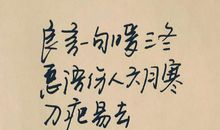 良言一句暖三冬
恶语伤人六月寒
刀疤易去